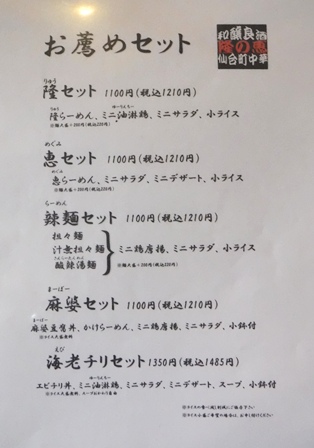 お薦めセット
和醸良酒
隆の恵
仙台町中華
りゅう
隆セット 1100円(税込1210円)
りゅう ゆーりんちー
隆らーめん、ミニ油淋鶏、ミニサラダ、小ライス
※麺大盛+200円(税込220円)
めぐみ
恵セット 1100円(税込1210円)
めぐみ
恵らーめん、ミニサラダ、ミニデザート、小ライス
※麺大盛+200円(税込220円)
らーめん
辣麺セット 1100円(税込1210円)
担々麺
汁無担々麺
酸辣湯麺
ミニ鶏唐揚、ミニサラダ、小ライス
※麺大盛+200円(税込220円)
まーぼー
麻婆セット 1100円(税込1210円)
まーぼー
麻婆豆腐丼、かけらーめん、ミニ鶏唐揚、ミニサラダ、小鉢付
※ライス大盛無料
えび
海老チリセット 1350円(税込1485円)
ゆーりんちー
エビチリ丼、ミニ油淋鶏、ミニサラダ、ミニデザート、スープ、小鉢付
※ライス大盛無料、スープおかわり自由